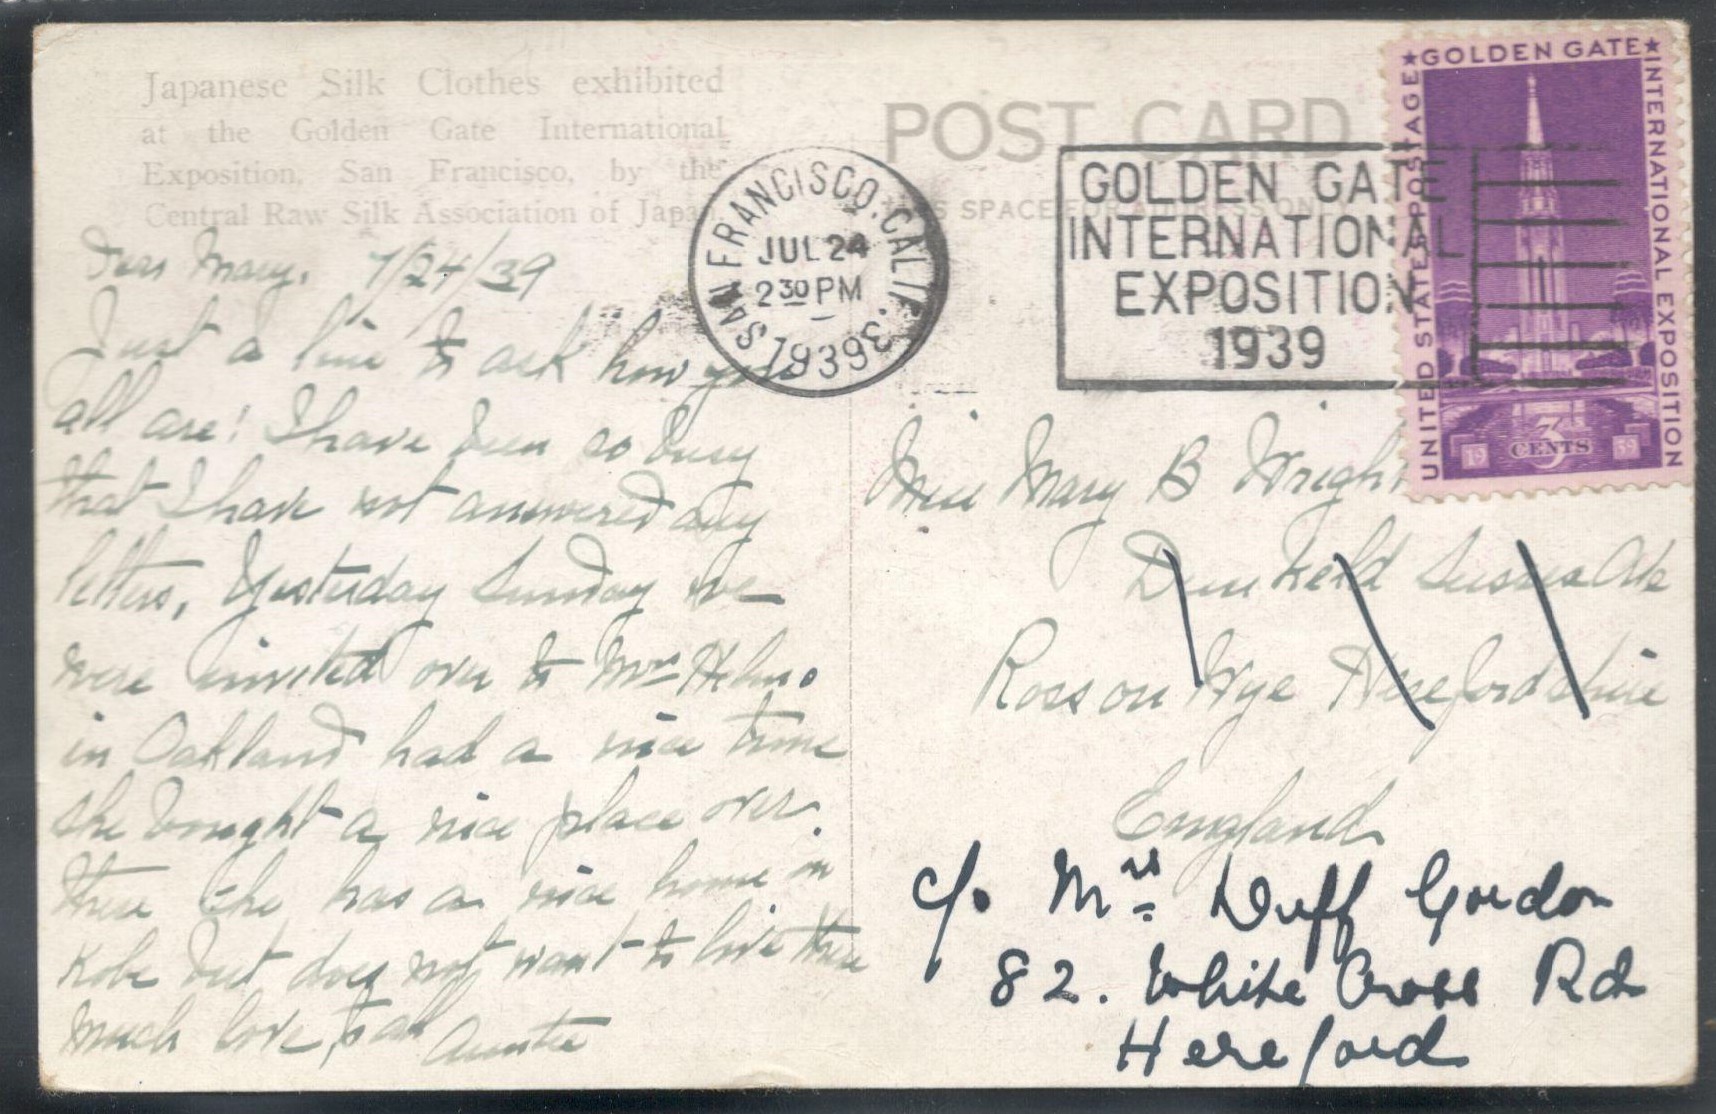 Japanese Silk Clothes exhibited
at the Golden Gate International
Exposition, San Francisco, by the
Central Raw Silk Association of Japan.
Dear Mary, 7/24/39
Just a line to ask how you
all are! I have been so busy
that I have not answered any
letters, Yesterday Sunday we
were invited over to Mrs Helms
in Oakland had a nice time
she bought a nice place over
there she has a nice home in
Kobe but does not want to live there
Much love to all Auntie
POST CARD
THIS SPACE FOR ADDRESS ONLY
SAN FRANCISCO, CALIF.
JUL 24
2 30 PM
1939
GOLDEN GATE
INTERNATIONAL
EXPOSITION
1939
★GOLDEN GATE★
INTERNATIONAL EXPOSITION
UNITED STATES POSTAGE
3
CENTS
19 39
Miss Mary B Wright
Ross on Wye Herefordshire
England
c/o Mrs Duff Gordon
82. White Cross Rd
Hereford